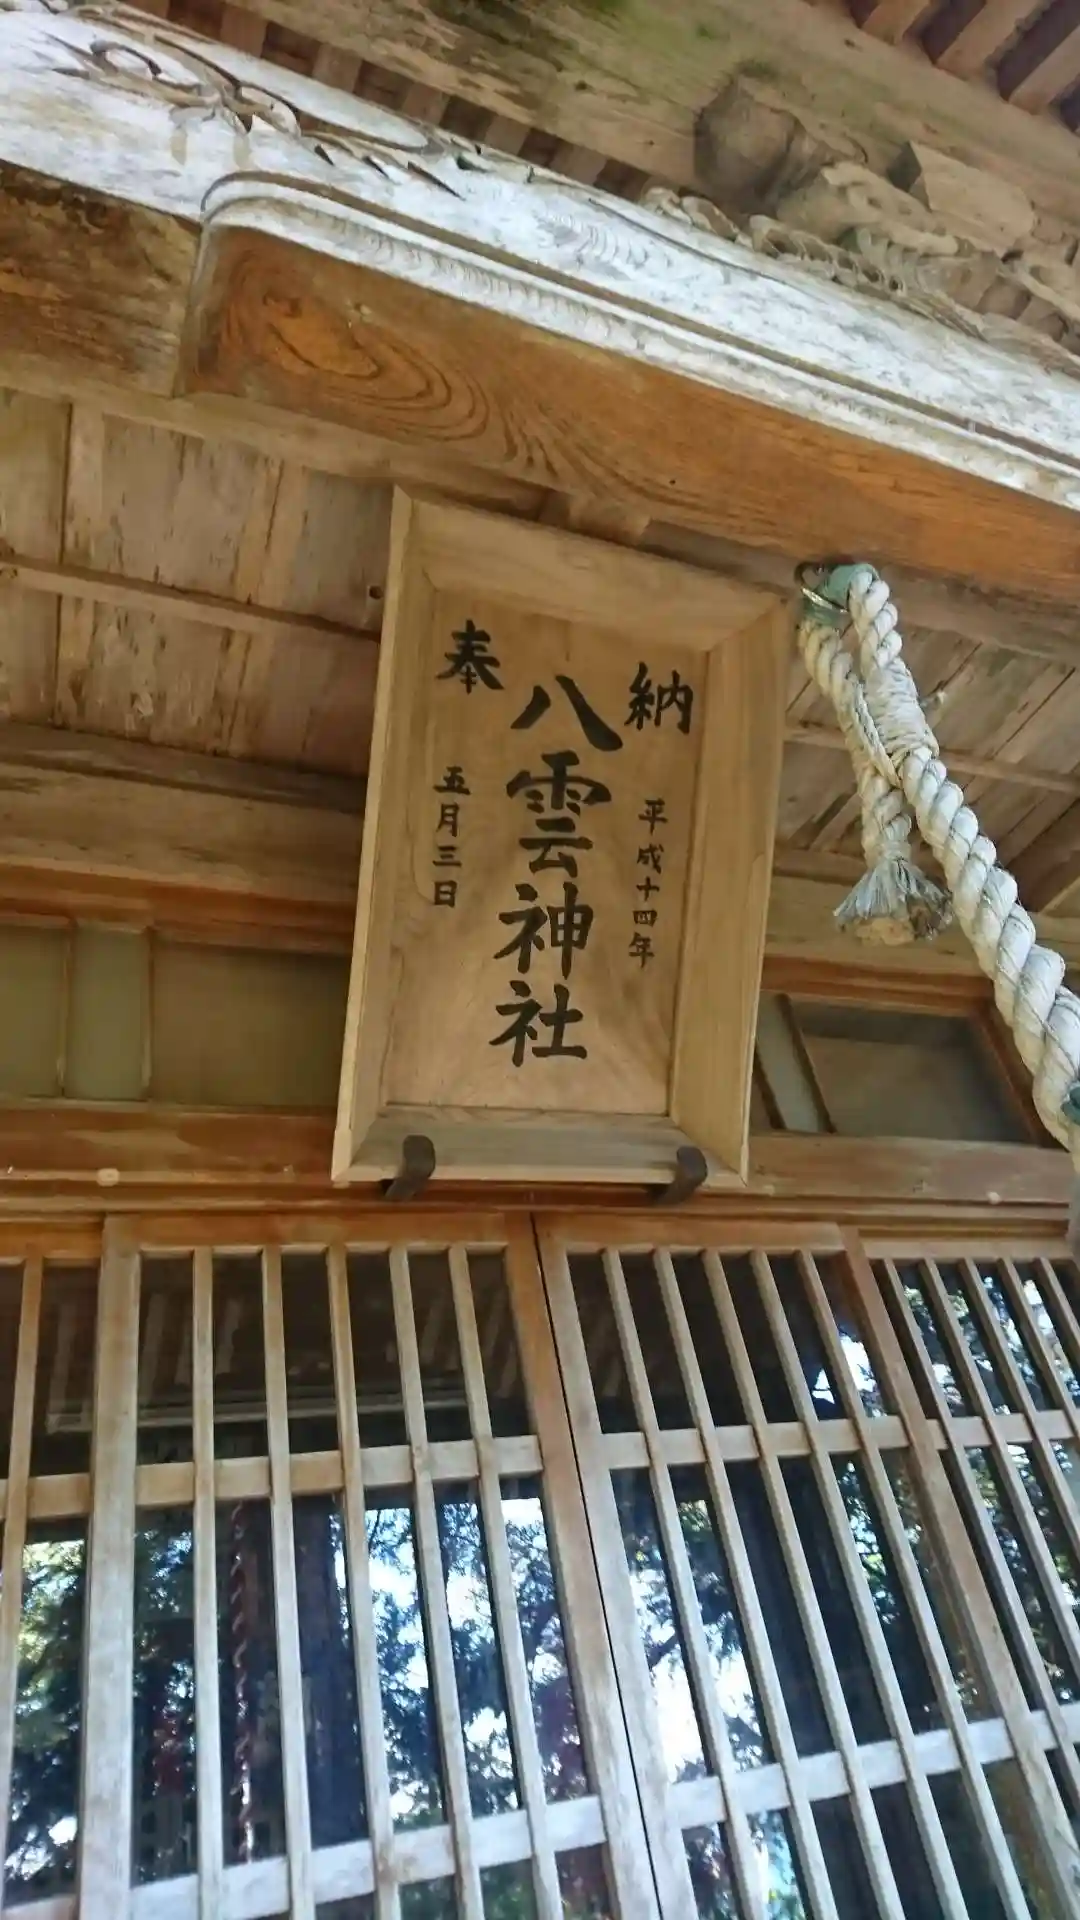 奉納
八雲神社
平成十四年
五月三日